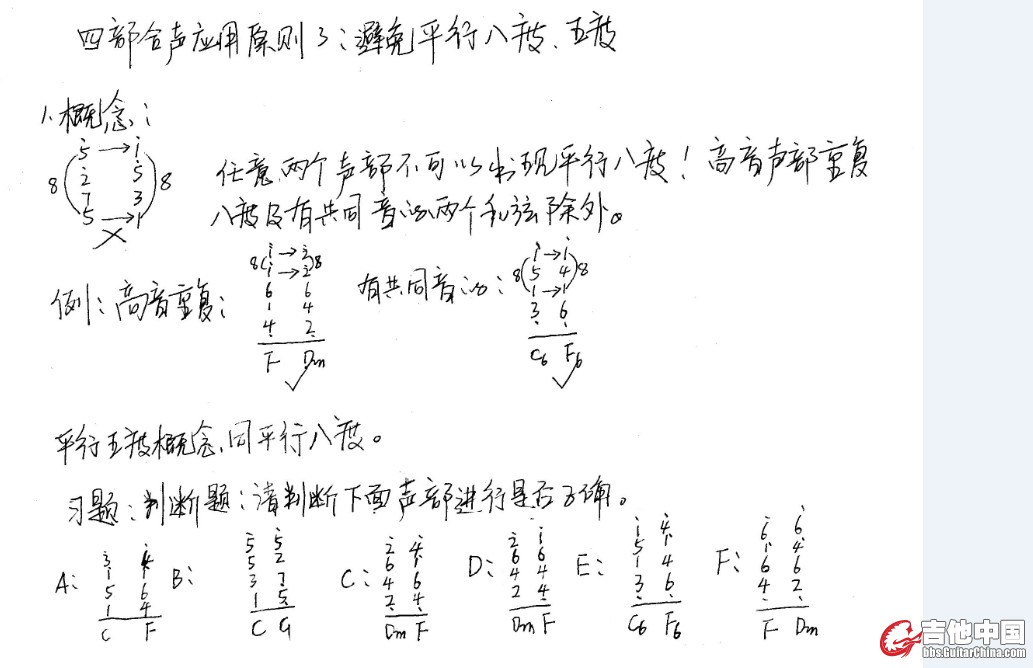 四部合声应用原则3：避免平行八度、五度
1.概念：
5→1
2 5
8 7 3 8
5→1
×
任意两个声部不可以出现平行八度！高音声部重复
八度及有共同音的两个和弦除外。
例：高音重复：
1→2
8 1→2 8
6 6
1 4
4 2
F Dm
✓
有共同音的：
1→1
8 5 4 8
1→1
3 6
C6 F6
✓
平行五度概念，同平行八度。
习题：判断题：请判断下面声部进行是否正确。
A：
3 4
1 1
5 6
1 4
C F
B：
5 5
5 2
3 7
1 5
C G
C：
2 4
6 1
4 6
2 4
Dm F
D：
2 1
6 6
4 4
2 4
Dm F
E：
1 4
5 1
1 4
3 6
C6 F6
F：
6 6
1 4
6 6
4 2
F Dm
吉他中国
bbs.GuitarChina.com